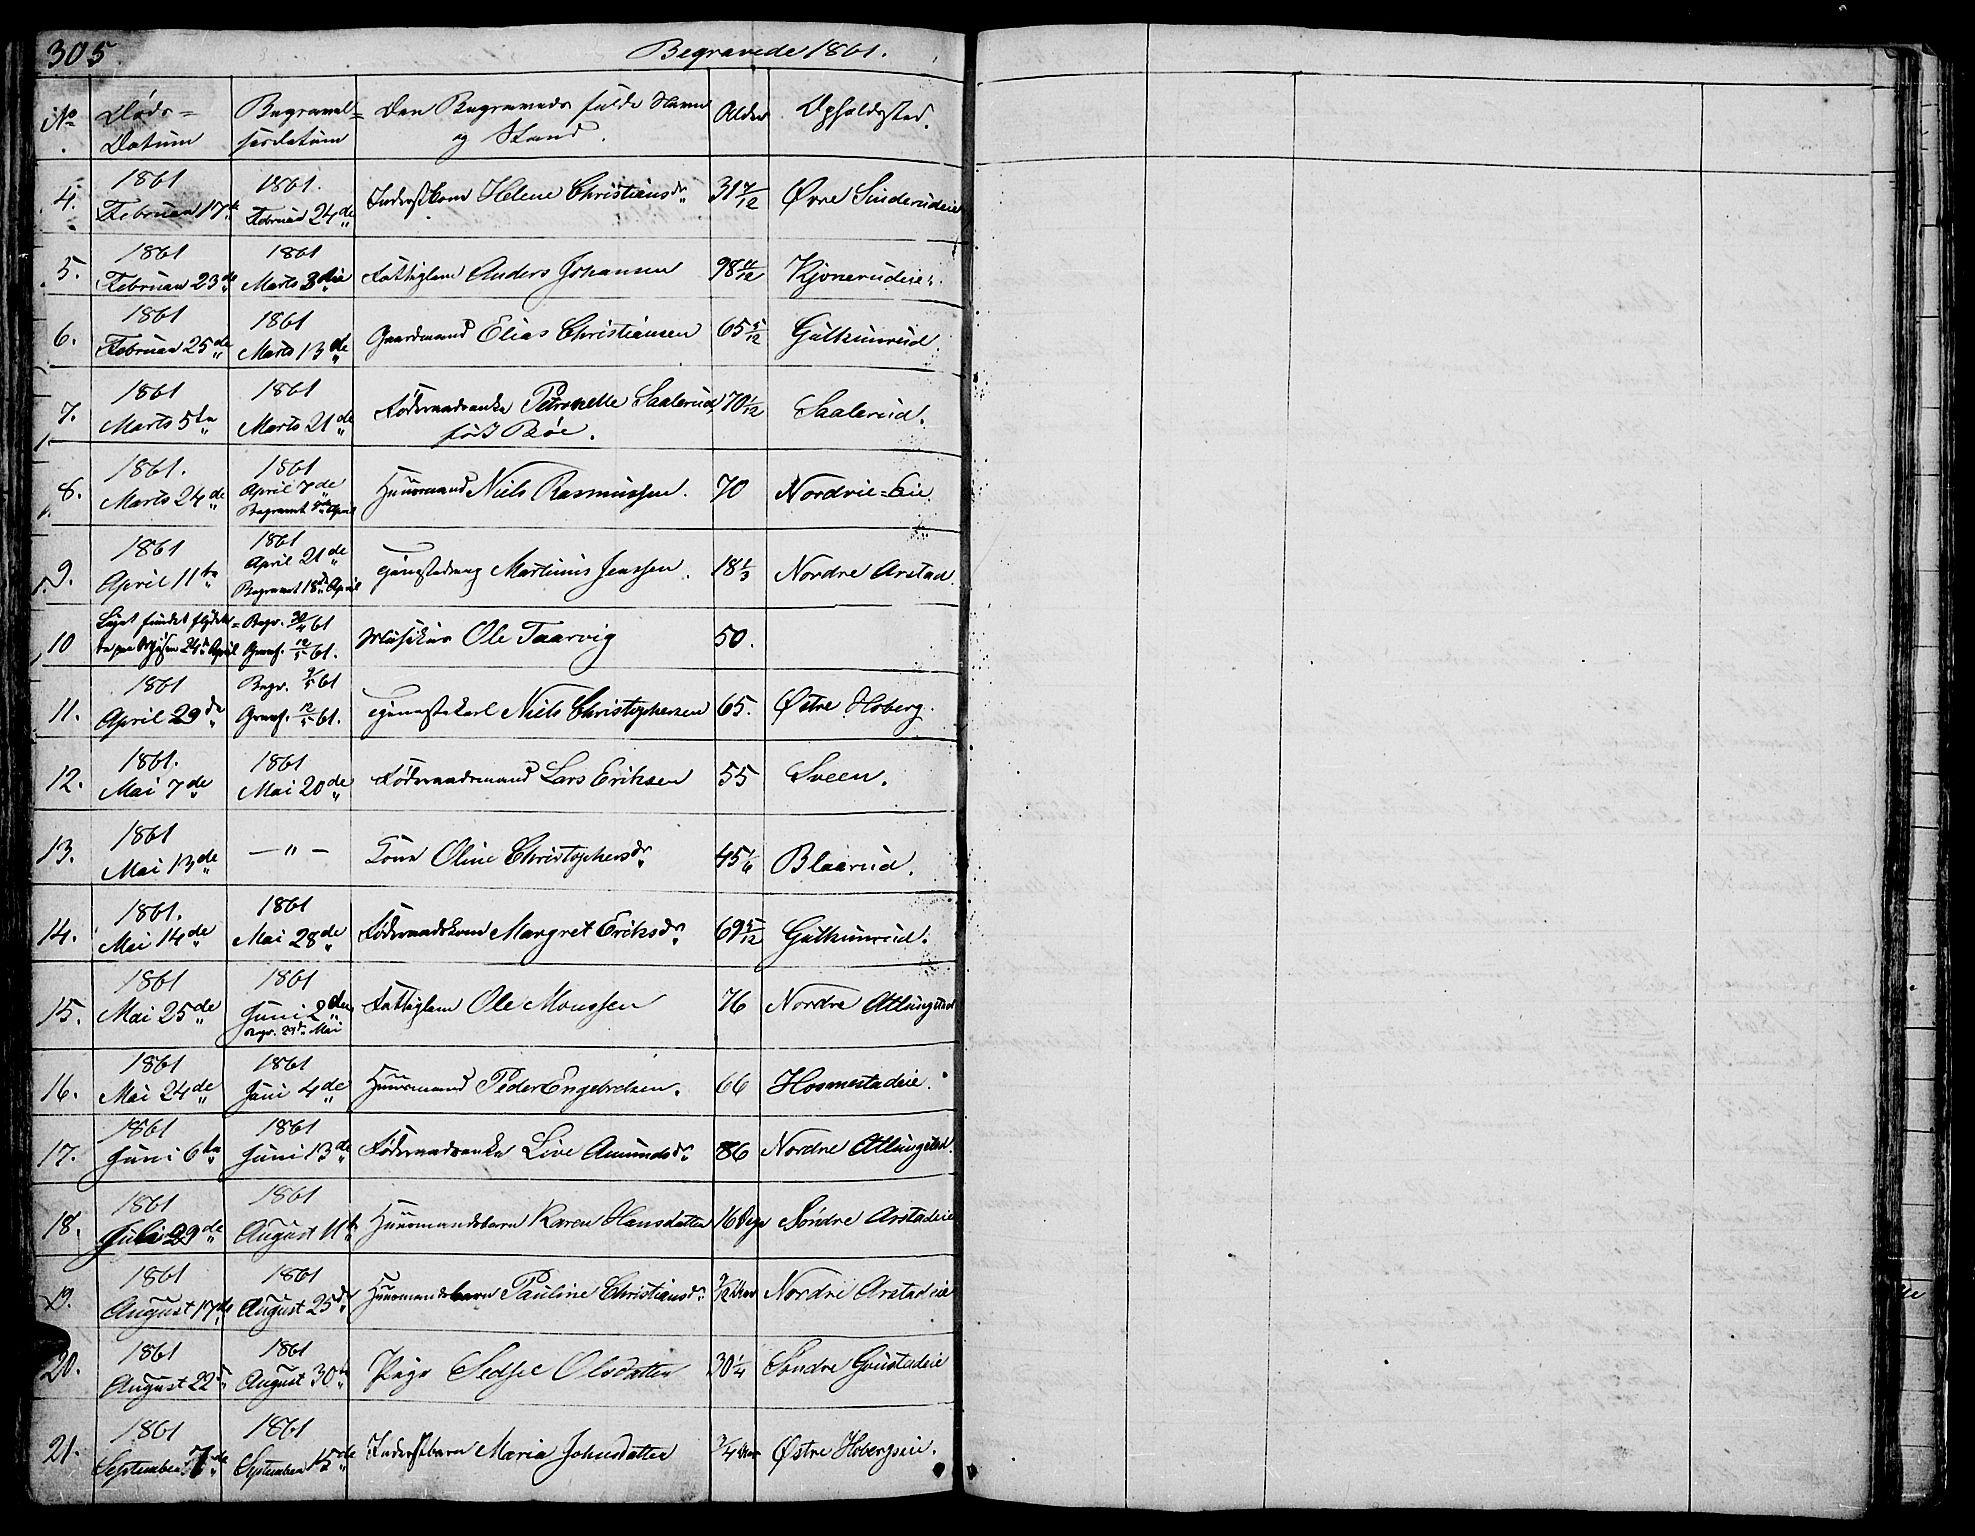 305 Begravede 1861.
No. Døds= Datum Begravel= sesdatum Den Begravedes fulde Navn og Stand. Alder Opholdssted.
4. 1861 Februar 17de 1861. Februar 24de Inderstkone Helene Christiansdr 31 Øvre Sinderudeie
5. 1861 Februar 23de 1861 Marts 3die Fattiglem Anders Johansen 98 Kjonerudeie.
6. 1861 Februar 25de 1861 Marts 13de Gaardmand Elias Christiansen 65 5/12 Gulhunrud.
7. 1861 Marts 5te 1861 Marts 21de Føderaadsenke Petronelle Saalerud født Bøe. 70 1/12 Saalerud.
8. 1861. Marts 24de 1861 April 7de Begravet April Huusmand Niels Rasmussen. 70 Nordvie=Eie
9. 1861 April 11te 1861 April 21de Begravet 18de April Tjenestedreng Martinus Jenssen. 18 1/3 Nordre Arstad.
10 Liget fundet flyden= de paa Mjøsen 24de April Begr. 30/4 61 Grav. 12/5 61. Musikus Ole Taarvig 50.
11. 1861 April 29de Begr. 9/5 61 Grav. 12/5 61. Tjenestekarl Niels Christophersen 65. Østre Hoberg.
12. 1861. Mai 7de 1861 Mai 20de Føderaadsmand Lars Eriksen 55 Sveen.
13. 1861 Mai 13de — " — Kone Oline Christophersdr 45 1/6 Blaarud.
14. 1861. Mai 14de 1861 Mai 28de Føderaadskone Margret Eriksdr 69 5/12 Gulhunrud.
15. 1861 Mai 25de 1861 Juni 2den Begr. 29de Mai Fattiglem Ole Monssen 76 Nordre Atlungstad
16. 1861 Mai 24de 1861 Juni 4de Huusmand Peder Engebretsen. 66 Hosmestadeie.
17. 1861 Juni 6te 1861 Juni 13de Føderaadsenke Live Amundsdr 86 Nordre Atlungstad.
18. 1861 Juli 29de 1861 August 11te Huusmandsbarn Karen Hansdatter 16 Dage Søndre Arstadeie
19. 1861 August 17de 1861 August 25de Huusmandsbarn Pauline Christiansdr Nordre Arstadeie
20. 1861 August 22de 1861 August 30te Pige Sedsel Olsdatter 30 1/4 Søndre Grustadeie
21. 1861 September 7de 1861 September 15de Inderstbarn Maria Johnsdatter 3/4 Aar Østre Hobergseie.